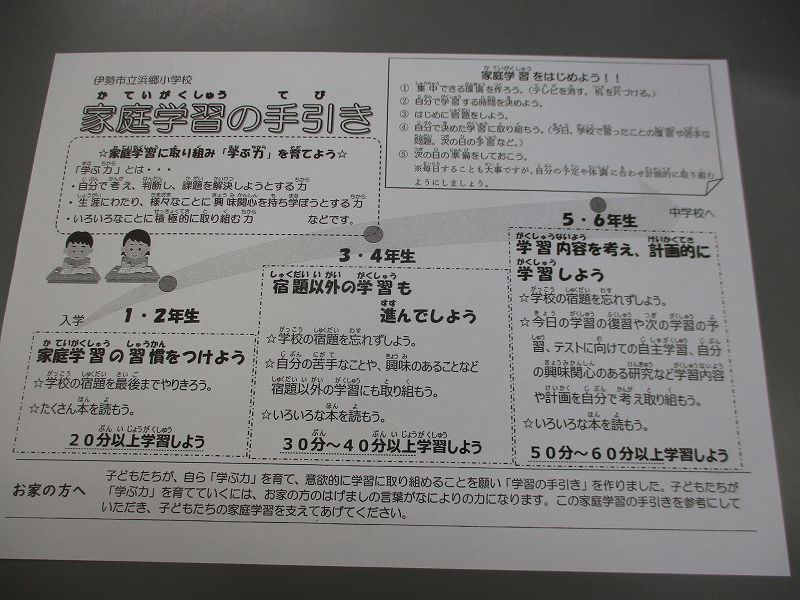 伊勢市立浜郷小学校
家庭学習の手引き
☆家庭学習に取り組み「学ぶ力」を育てよう☆
「学ぶ力」とは・・・
・自分で考え、判断し、課題を解決しようとする力
・生涯にわたり、様々なことに興味関心を持ち学ぼうとする力
・いろいろなことに積極的に取り組む力　などです。
家庭学習をはじめよう！！
① 集中できる環境を作ろう。（テレビを消す。机を片づける。）
② 自分で学習する時間を決めよう。
③ はじめに宿題をしよう。
④ 自分で決めた学習に取り組もう。（今日、学校で習ったことの復習や苦手な
問題。次の日の予習など。）
⑤ 次の日の準備をしておこう。
※毎日することも大事ですが、自分の予定や体調に合わせ計画的に取り組む
ようにしましょう。
入学
1・2年生
家庭学習の習慣をつけよう
☆学校の宿題を最後までやりきろう。
☆たくさん本を読もう。
20分以上学習しよう
3・4年生
宿題以外の学習も
進んでしよう
☆学校の宿題を忘れずしよう。
☆自分の苦手なことや、興味のあることなど
宿題以外の学習にも取り組もう。
☆いろいろな本を読もう。
30分～40分以上学習しよう
5・6年生
中学校へ
学習内容を考え、計画的に
学習しよう
☆学校の宿題を忘れずしよう。
☆今日の学習の復習や次の学習の予
習、テストに向けての自主学習、自分
の興味関心のある研究など学習内容
や計画を自分で考え取り組もう。
☆いろいろな本を読もう。
50分～60分以上学習しよう
お家の方へ
子どもたちが、自ら「学ぶ力」を育て、意欲的に学習に取り組めることを願い「学習の手引き」を作りました。子どもたちが
「学ぶ力」を育てていくには、お家の方のはげましの言葉がなによりの力になります。この家庭学習の手引きを参考にして
いただき、子どもたちの家庭学習を支えてあげてください。